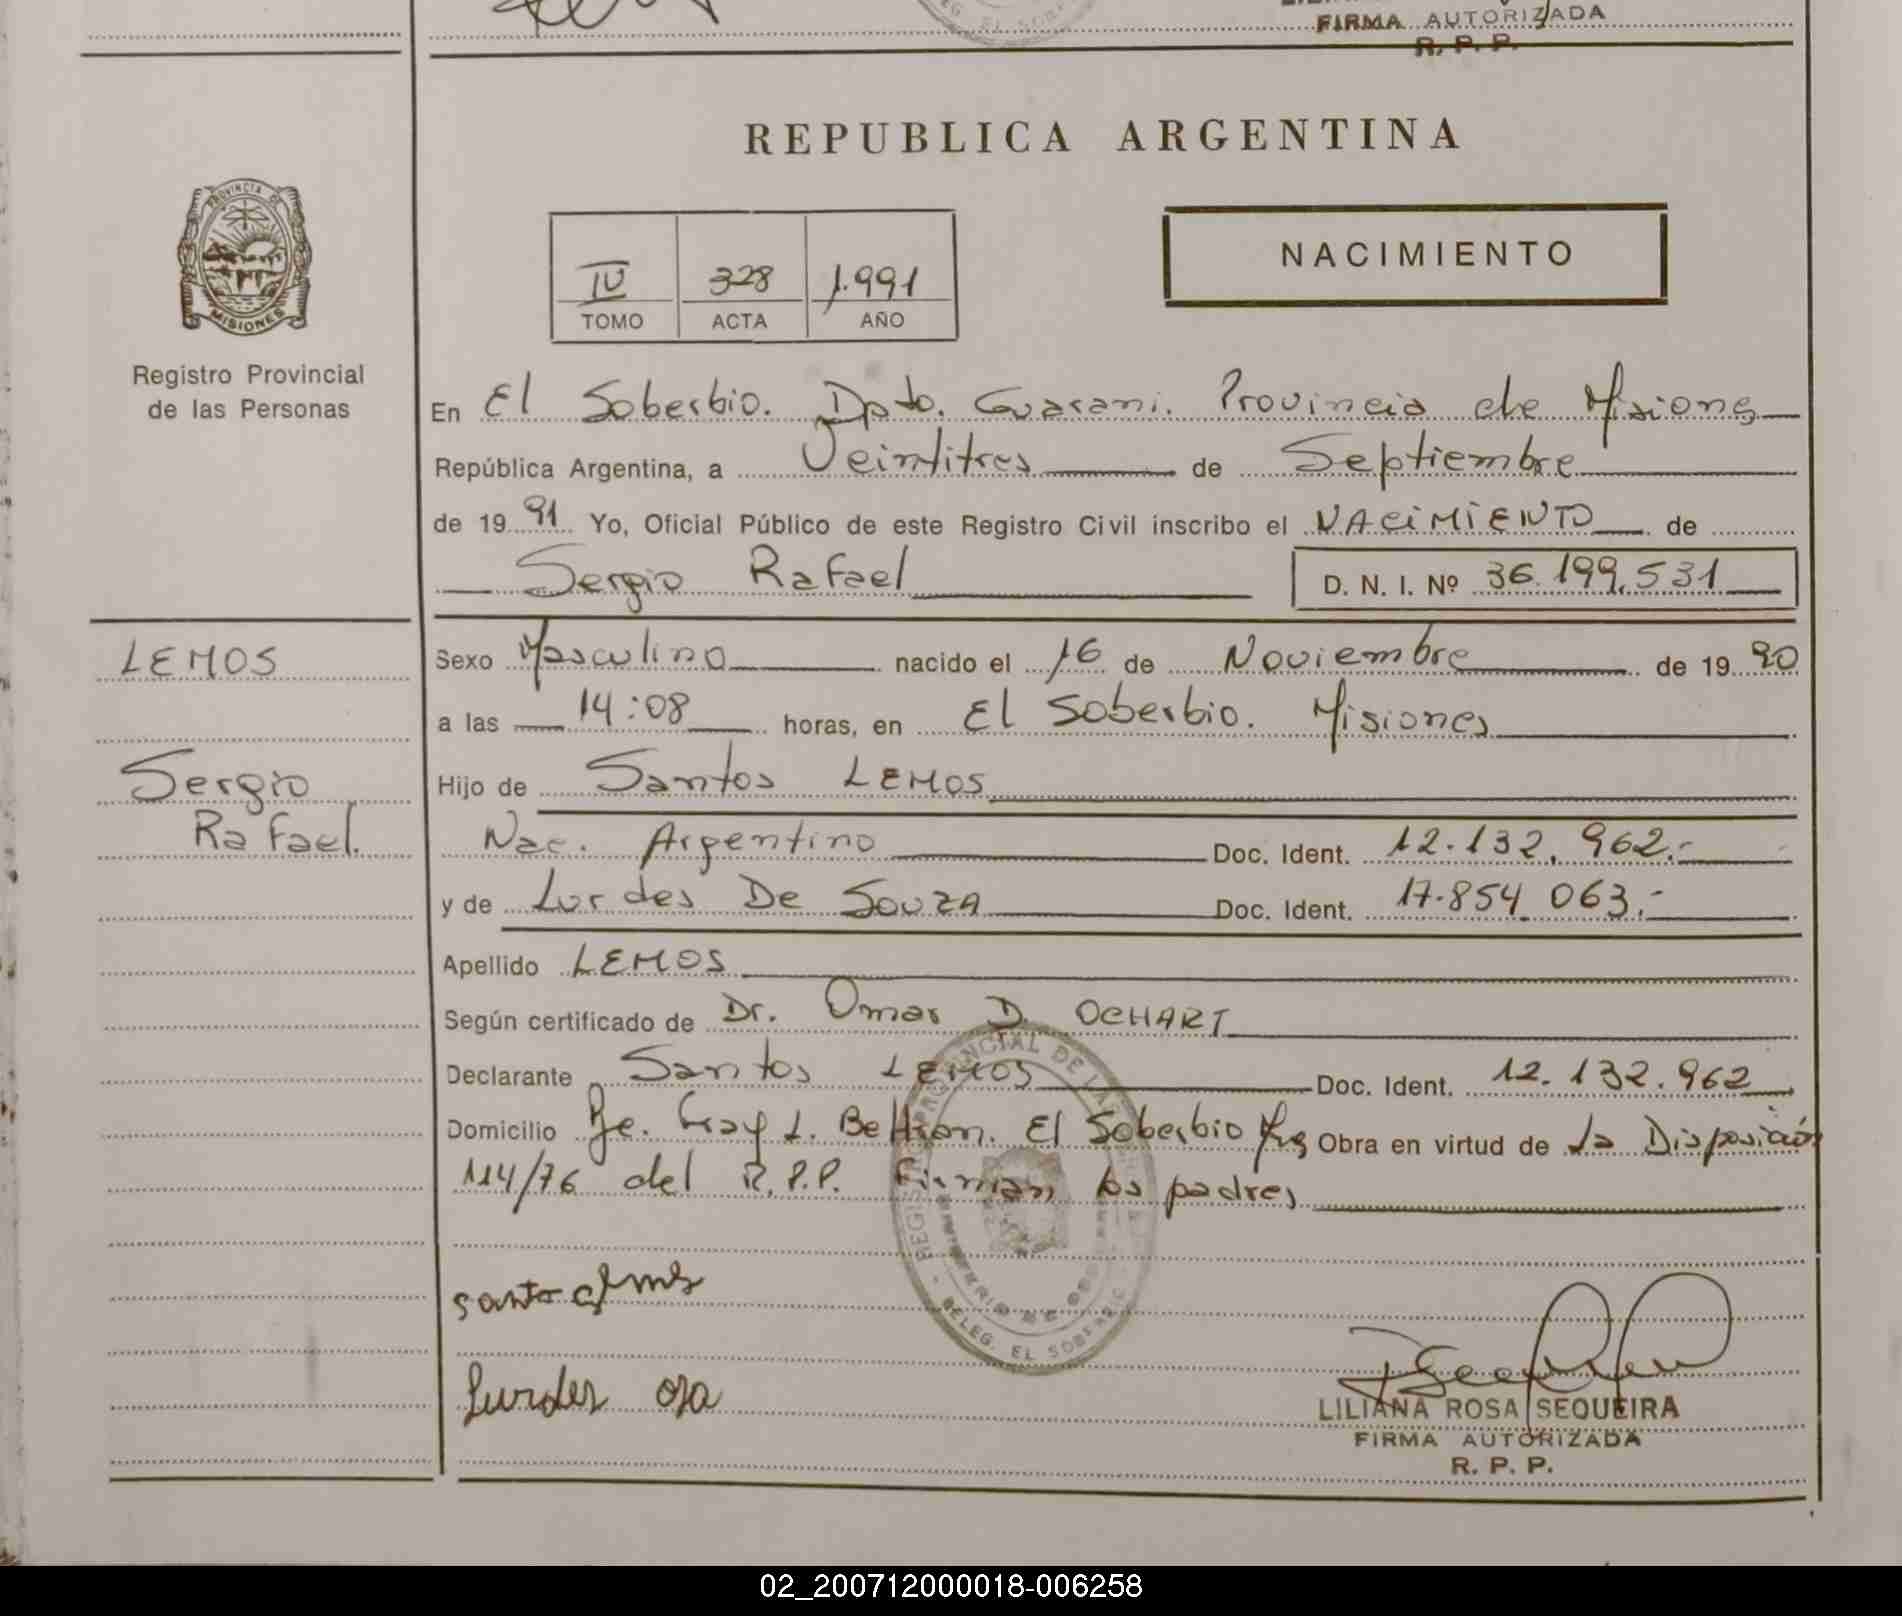 FIRMA AUTORIZADA
R. P. P.
REPUBLICA ARGENTINA
PROVINCIA DE
MISIONES
Registro Provincial
de las Personas
IV 328 1.991
TOMO ACTA AÑO
NACIMIENTO
En El Soberbio. Dpto. Guarani. Provincia de Misiones
República Argentina, a Veintitres de Septiembre
de 1991 Yo, Oficial Público de este Registro Civil inscribo el NACIMIENTO de
Sergio Rafael D. N. I. Nº 36.199.531
LEMOS
Sergio
Rafael.
Sexo Masculino nacido el 16 de Noviembre de 1990
a las 14:08 horas, en El Soberbio. Misiones
Hijo de Santos LEMOS
Nac. Argentino Doc. Ident. 12.132.962.-
y de Lurdes De Souza Doc. Ident. 17.854.063.-
Apellido LEMOS
Según certificado de Dr. Omar D. OCHART
Declarante Santos LEMOS Doc. Ident. 12.132.962
Domicilio Fray L. Beltran. El Soberbio Mns Obra en virtud de la Disposición
114/76 del R.P.P. Firman los padres
REGISTRO PROVINCIAL DE LAS
DELEG. EL SOBERBIO
Lurdes
LILIANA ROSA SEQUEIRA
FIRMA AUTORIZADA
R. P. P.
02_200712000018-006258